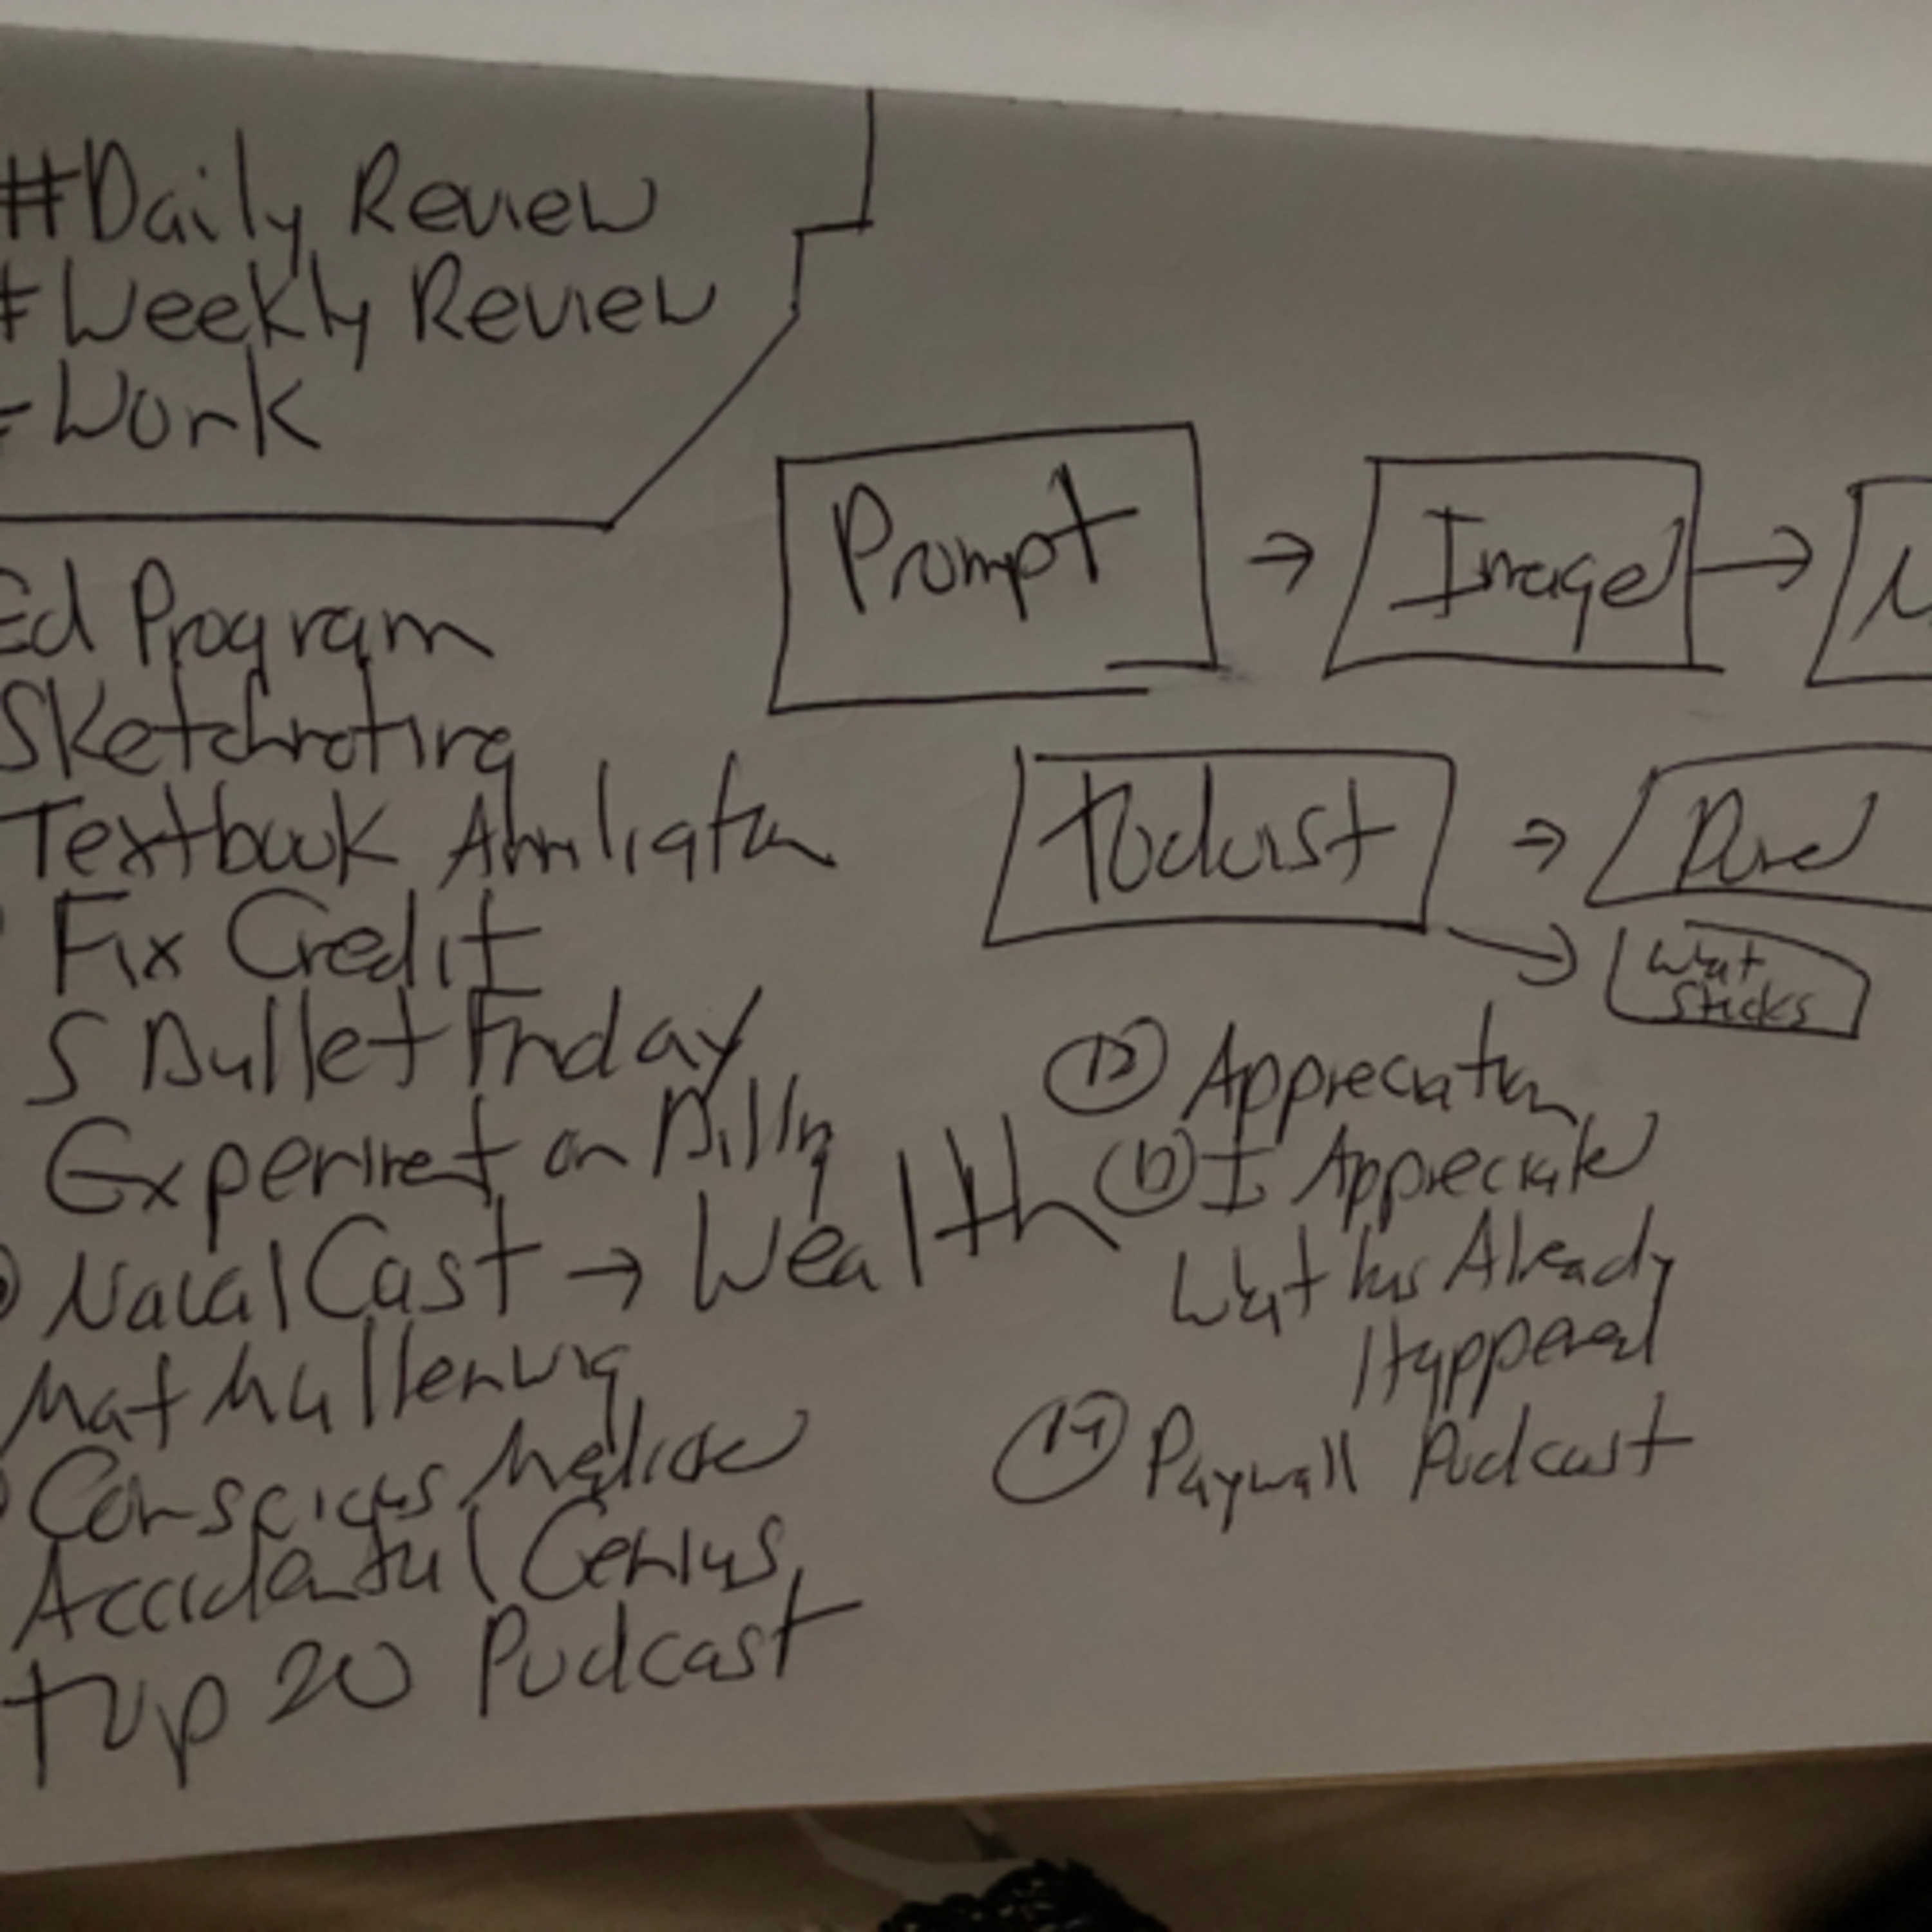 #Daily Review
#Weekly Review
Work
Prompt → Image →
Ed Program
Sketchnoting
Todoist →
Textbook
What
Sticks
Fix Credit
5 Bullet Friday
12 Appreciation
Experiment on
13 I Appreciate
What has Already
Happened
Naval Cast → Wealth
Mat Mullenwig
14 Paywall Podcast
Conscious
Accidental Genius
Top 20 Podcast